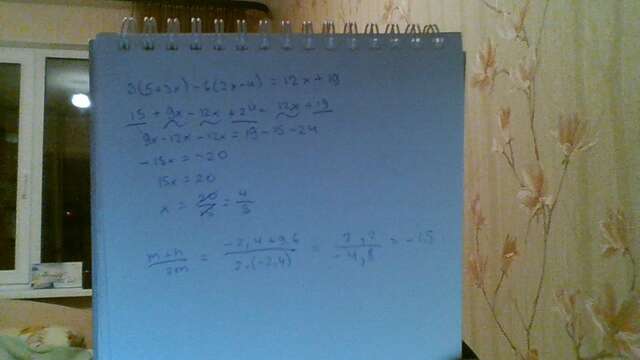 3(5+3x)-6(2x-4)=12x+19
15+9x-12x+24=12x+19
9x-12x-12x=19-15-24
-15x=-20
15x=20
x=20/15=4/3
m+n/2m = -2,4+9,6/2·(-2,4) = 7,2/-4,8 = -1,5